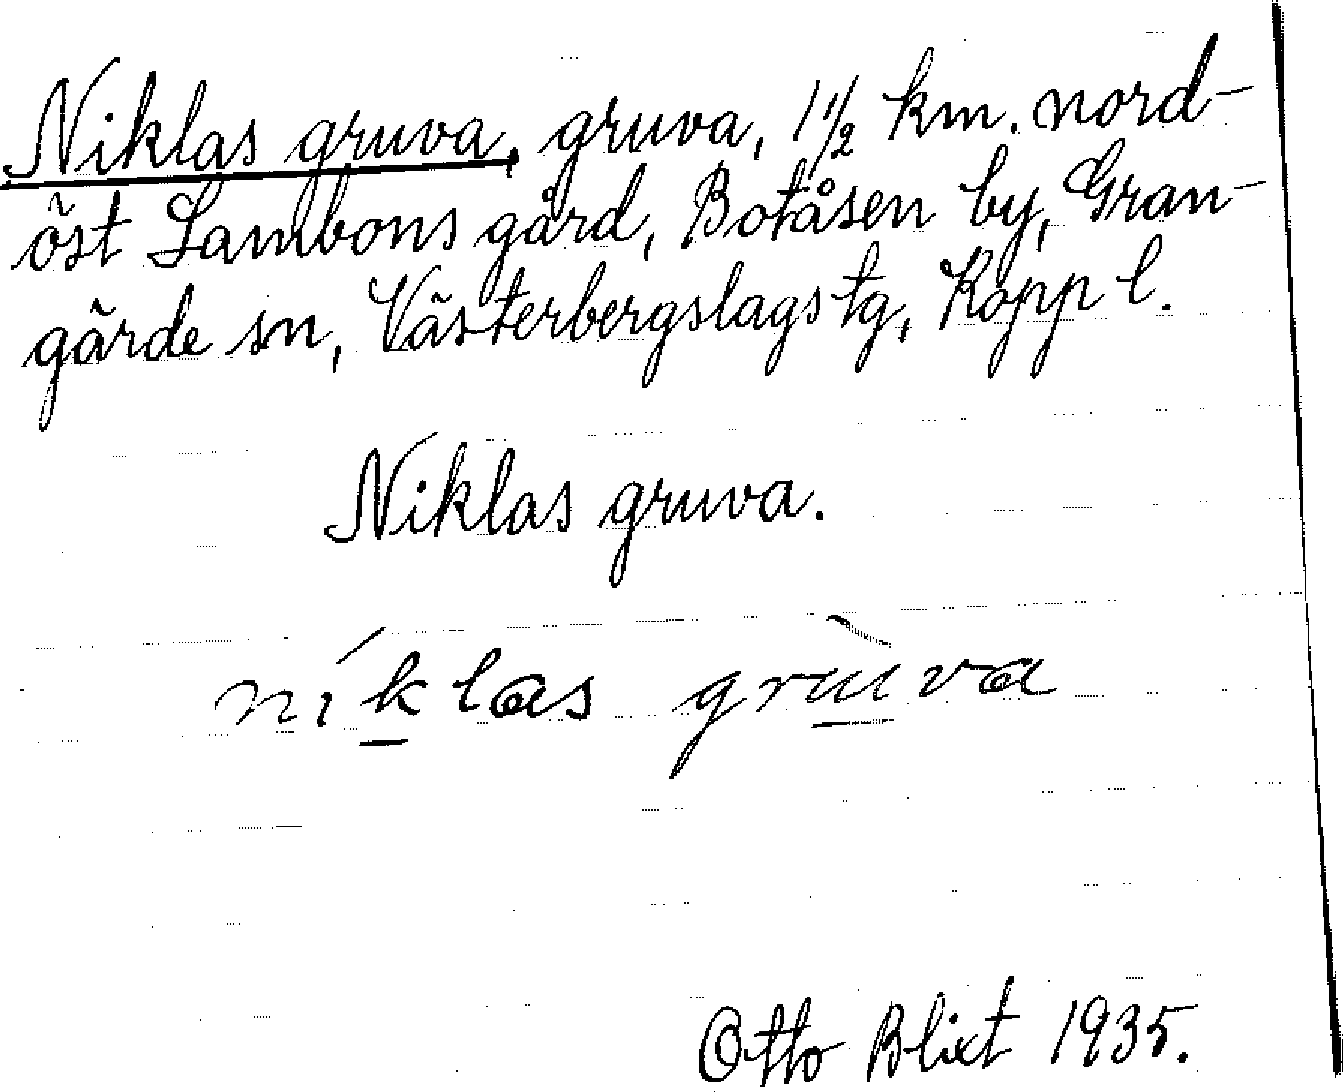 Niklas gruva, gruva, 1 1/2 km. nord-
öst Lambons gård, Botåsen by, Gran-
gärde sn, Västerbergslags tg, Kopp l.
Niklas gruva.
níklas grùva
Otto Blixt 1935.